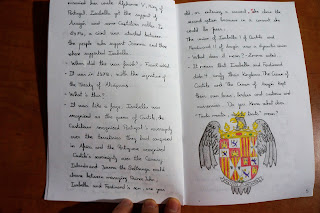 married her uncle Alphonse V, King of
Portugal. Isabella got the support of
Aragon and some Castilian nobles. In
1475, a civil war started between
the people who support Joanna and those
whose supported Isabella.
- When did the war finish? - Fran asked.
- It was in 1479, with the signature of
the Treaty of Alcaçovas.
- What's that?
- It was like a peace. Isabella was
recognised as the queen of Castile, the
Castilians recognised Portugal's sovereignty
over the territories they had conquered
in Africa and the Portuguese recognised
Castile's sovereignty over the Canary
Islands and Joanna the Beltraneja could
choose between marrying Prince John,
Isabella and Ferdinand's son, one year
old or entering a convent. She chose the
second option because in a convent she
could be free.
The union of Isabella I of Castile and
Ferdinand II of Aragon was a dynastic union.
- What does it mean? - Aitana asked.
- It means that Isabella and Ferdinand
didn't unify their Kingdoms. The Crown of
Castile and the Crown of Aragon kept
their own laws, borders and customs and
currencies. Do you know what does
"Tanto monta, monta tanto" mean?